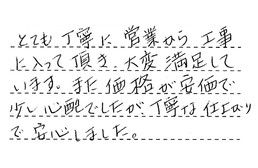 とても丁寧に営業から工事
に入って頂き、大変満足して
います。また価格が安価で
少し心配でしたが丁寧な仕上がり
で安心しました。